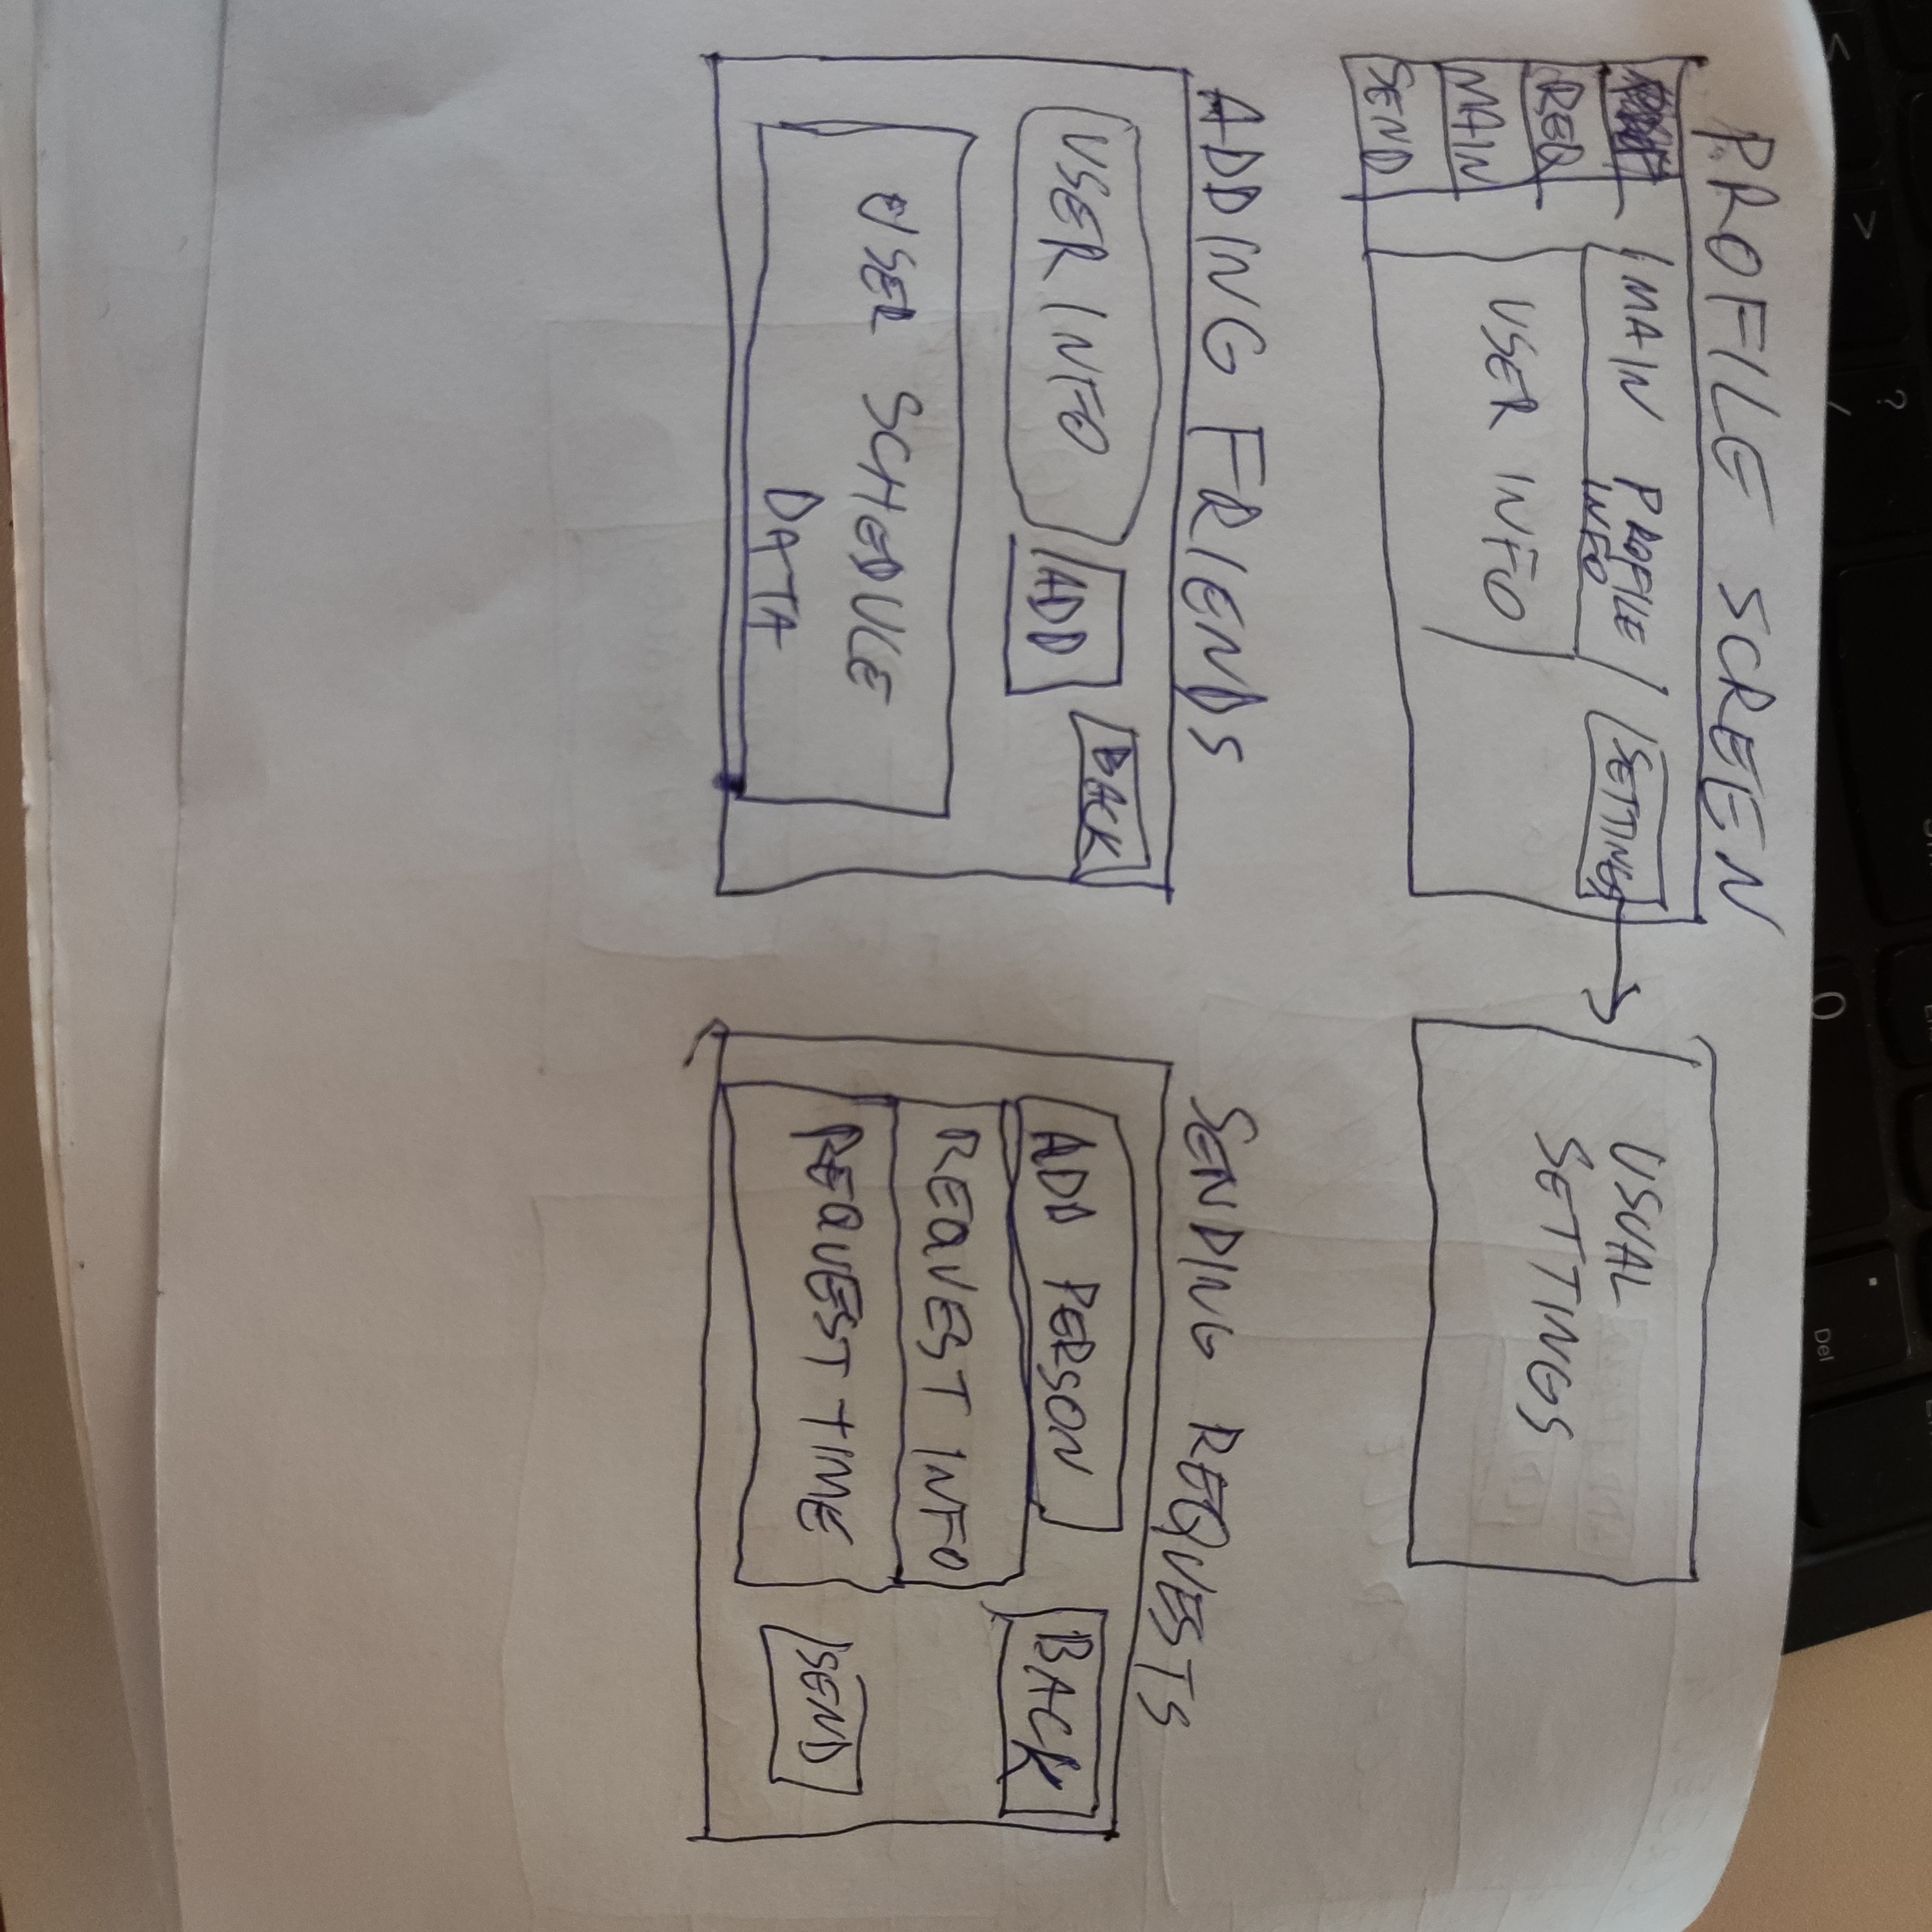 PROFILE SCREEN
REQ
MAIN
SEND
MAIN PROFILE
INFO
SETTINGS
USER INFO
USUAL
SETTINGS
ADDING FRIENDS
USER INFO
ADD
BACK
USER SCHEDULE
DATA
SENDING REQUESTS
ADD PERSON
BACK
REQUEST INFO
REQUEST TIME
SEND
?
/
<
>
0
.
Del